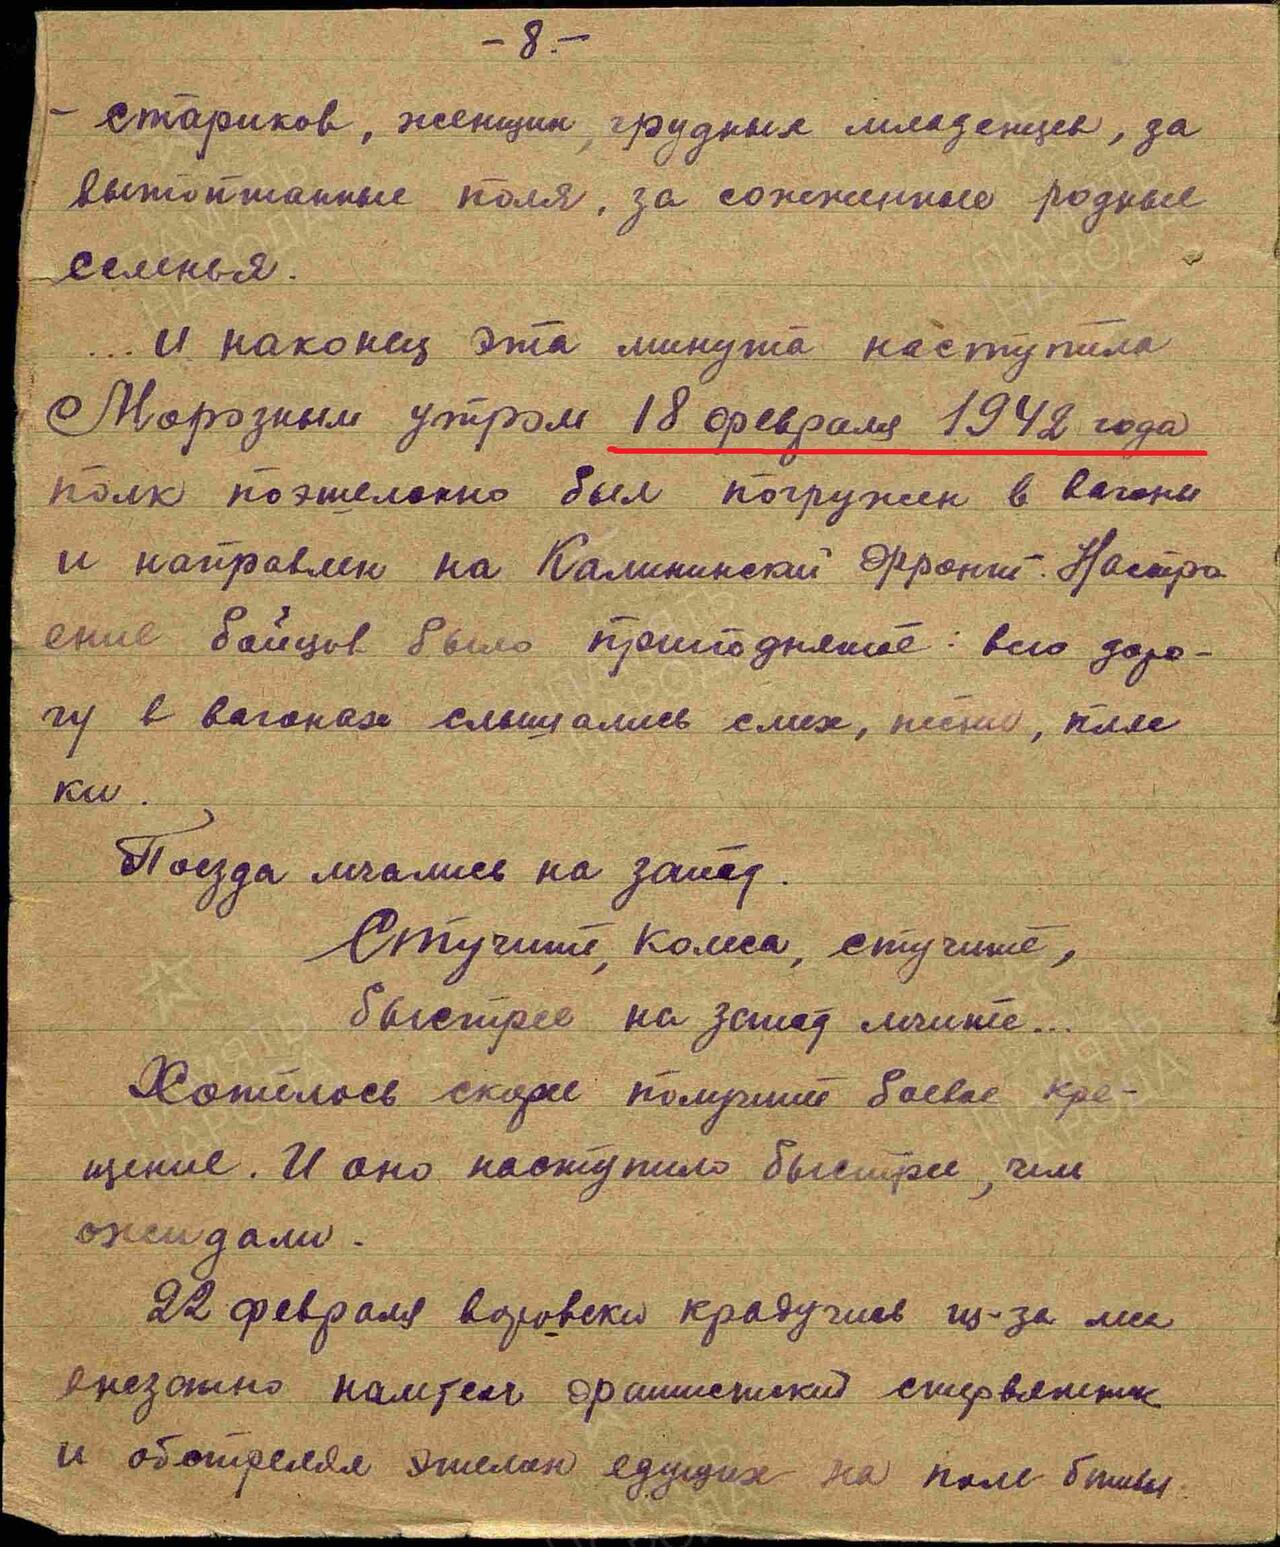 - 8. -
- стариков, женщин, грудных младенцев, за
вытоптанные поля, за сожженные родные
селенья.
... И наконец эта минута наступила
Морозным утром 18 февраля 1942 года
полк поэшелонно был погружен в вагоны
и направлен на Калининский фронт. Настро
ение бойцов было приподнятое: всю доро-
гу в вагонах слышались смех, песни, пляс
ки.
Поезда мчались на запад.
Стучите, колеса, стучите,
быстрее на запад мчите...
Хотелось скорее получить боевое кре-
щение. И оно наступило быстрее, чем
ожидали.
22 февраля воровски крадучись из-за леса
внезапно налетел фашистский стервятник
и обстрелял эшелон едущих на поле битвы.
ПАМЯТЬ
НАРОДА